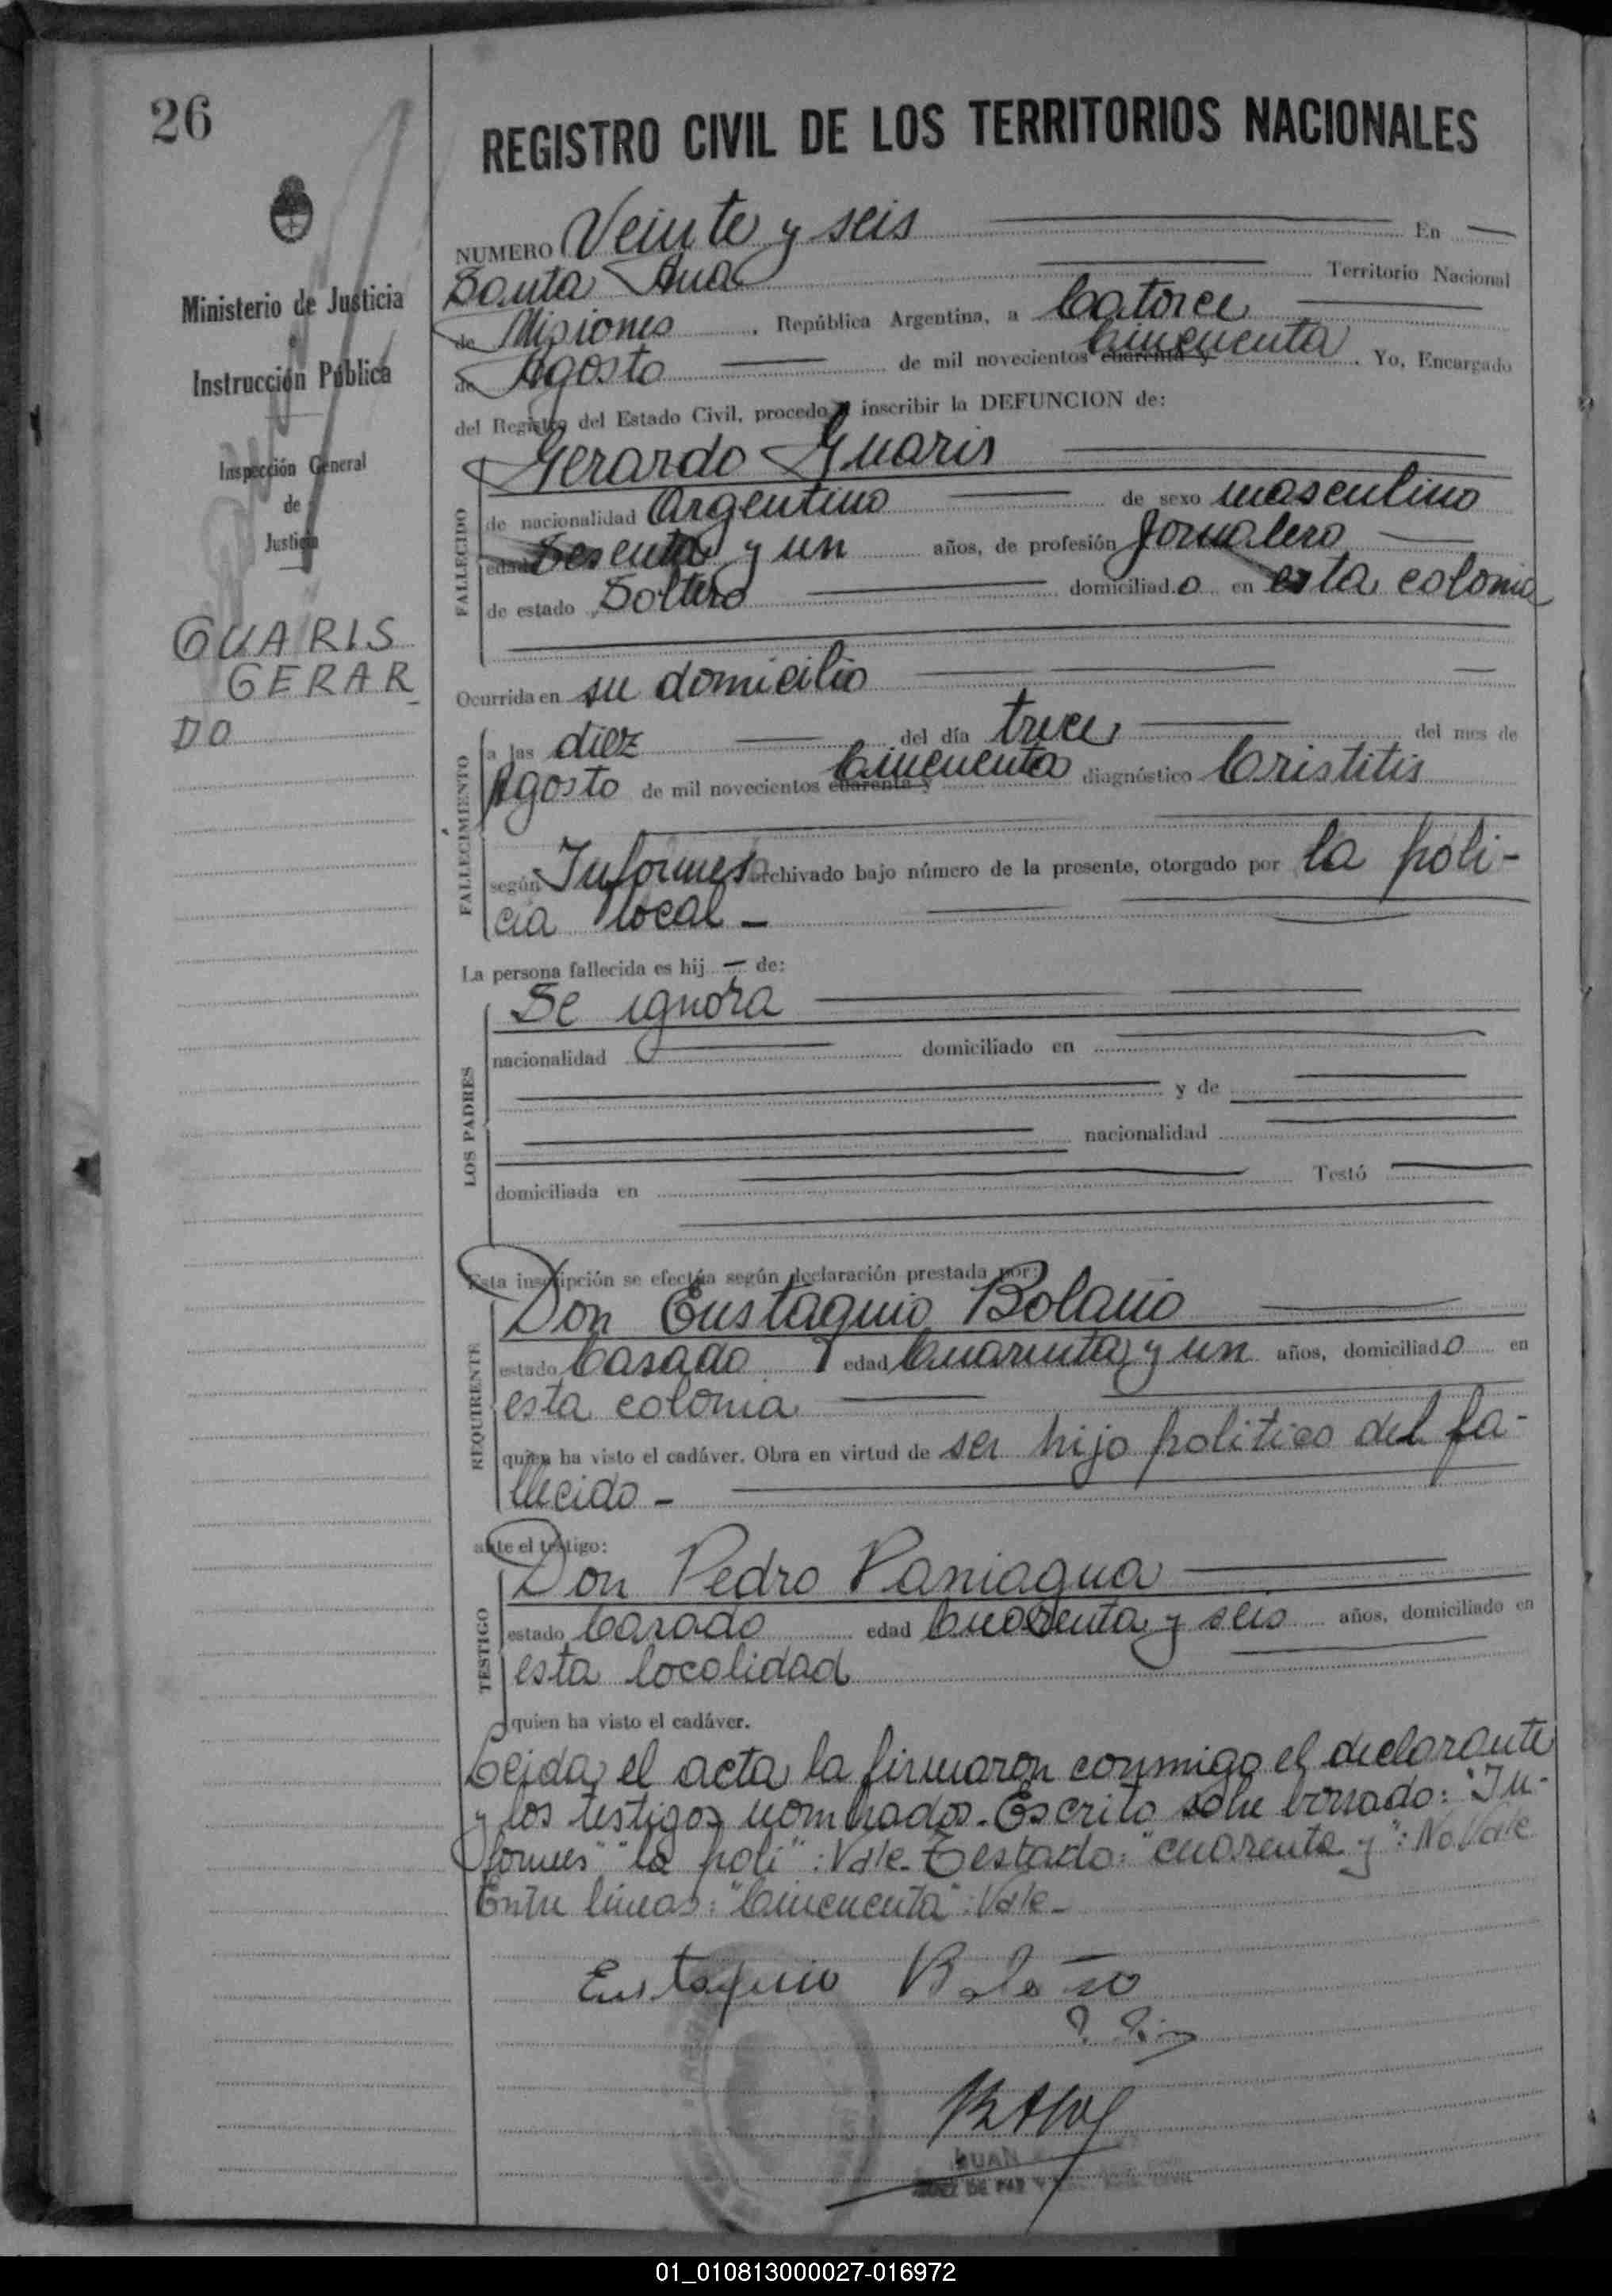 26
REGISTRO CIVIL DE LOS TERRITORIOS NACIONALES
Ministerio de Justicia
Instrucción Pública
Inspección General
de
Justicia
GUARIS
GERAR
DO
NUMERO Veinte y seis En
Santa Ana Territorio Nacional
de Misiones, República Argentina, a Catorce
de Agosto de mil novecientos cuarenta y Cincuenta. Yo, Encargado
del Registro del Estado Civil, procedo a inscribir la DEFUNCION de:
Gerardo Guaris
FALLECIDO
de nacionalidad Argentino de sexo masculino
edad Sesenta y un años, de profesión Jornalero
de estado Soltero domiciliado en esta colonia
Ocurrida en su domicilio
FALLECIMIENTO
a las diez del día trece del mes de
Agosto de mil novecientos cuarenta y Cincuenta diagnóstico Cristitis
según Informes archivado bajo número de la presente, otorgado por la poli-
cia local -
La persona fallecida es hij - de:
LOS PADRES
Se ignora
nacionalidad domiciliado en
y de
nacionalidad
domiciliada en Testó
Esta inscripción se efectúa según declaración prestada por:
REQUIRENTE
Don Eustaquio Bolaño
estado Casado edad Cuarenta y un años, domiciliado en
esta colonia
quien ha visto el cadáver. Obra en virtud de ser hijo politico del fa-
llecido -
ante el testigo:
TESTIGO
Don Pedro Paniagua
estado Casado edad Cuarenta y seis años, domiciliado en
esta localidad
quien ha visto el cadáver.
Leida el acta la firmaron conmigo el declarante
y los testigos nombrados. Escrito sobre borrado: "In-
formes" "la poli": Vale. Testado: "cuarenta y": No Vale
Entre lineas: "Cincuenta": Vale -
Eustaquio Bolaño
JUAN
JUEZ DE PAZ Y
01_010813000027-016972